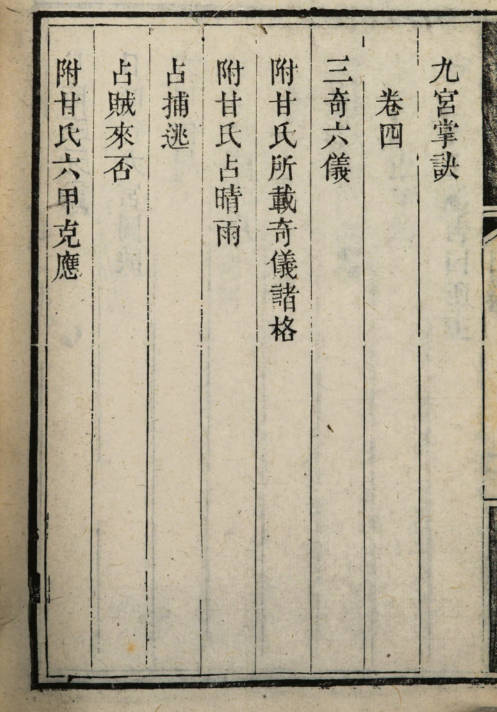 九宮掌訣
卷四
三奇六儀
附甘氏所載奇儀諸格
附甘氏占晴雨
占捕逃
占賊來否
附甘氏六甲克應